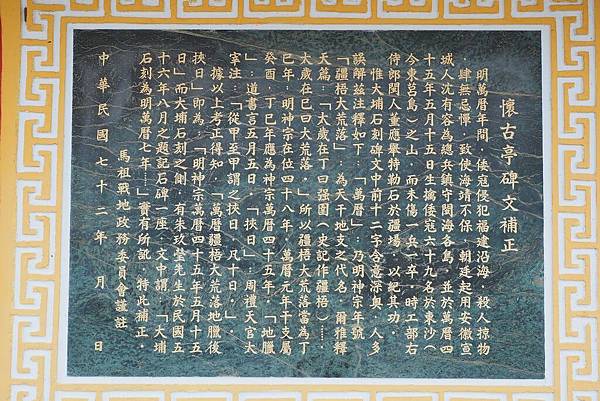 懷古亭碑文補正
明萬曆年間，倭寇侵犯福建沿海，殺人掠物
，肆無忌憚，致使海靖不保，朝廷起用安徽宣
城人沈有容為總兵鎮守閩海各島，並於萬曆四
十五年五月十五日生擒倭寇六十九名於東沙（
今東莒島）之山，而未傷一兵一卒，時工部右
侍郎閩人董應舉特勒石於疆場，以紀其功。
惟大埔石刻碑文中前十二字含意深奧，人多
誤解茲注釋如下：「萬曆」：乃明神宗年號
「疆梧大荒落」：為天干地支之代名，爾雅釋
天篇：「太歲在丁曰强圉(史記作疆梧)……
大歲在巳曰大荒落。」所以疆梧大荒落當為丁
巳年：明神宗在位四十八年，萬曆元年干支屬
癸酉，丁巳年應為神宗萬曆四十五年。「地臘
」：道書言五月五日。「挾日」：周禮天官太
宰注：「從甲至甲謂之挾日，凡十日。」
據以上考正得知，「萬曆疆梧大荒落地臘後
挾日」即為：「明神宗萬曆四十五年五月十五
日」而大埔石刻之側，有朱玖瑩先生於民國五
十六年八月之題記石碑一座，文中謂：「大埔
石刻為明萬曆七年……」實有所訛，特此補正。
馬祖戰地政務委員會謹註
中華民國七十二年　月　日